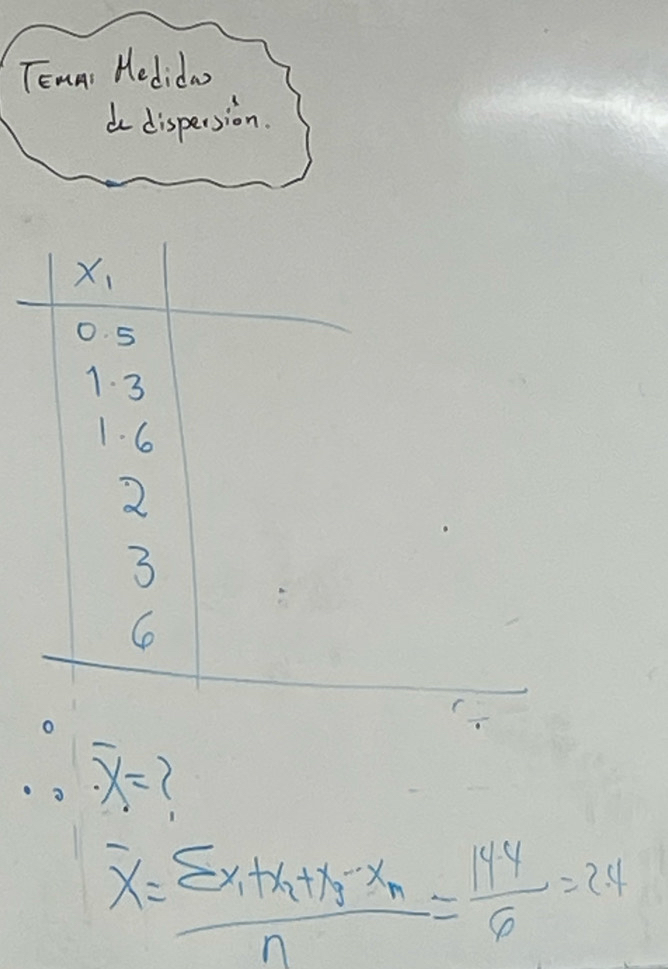 TEMA: Medidas
de dispersión.
X₁
0.5
1.3
1.6
2
3
6
∴ X̄=?
X̄ = Σx₁+x₂+x₃...xₙ / n = 14.4 / 6 = 2.4